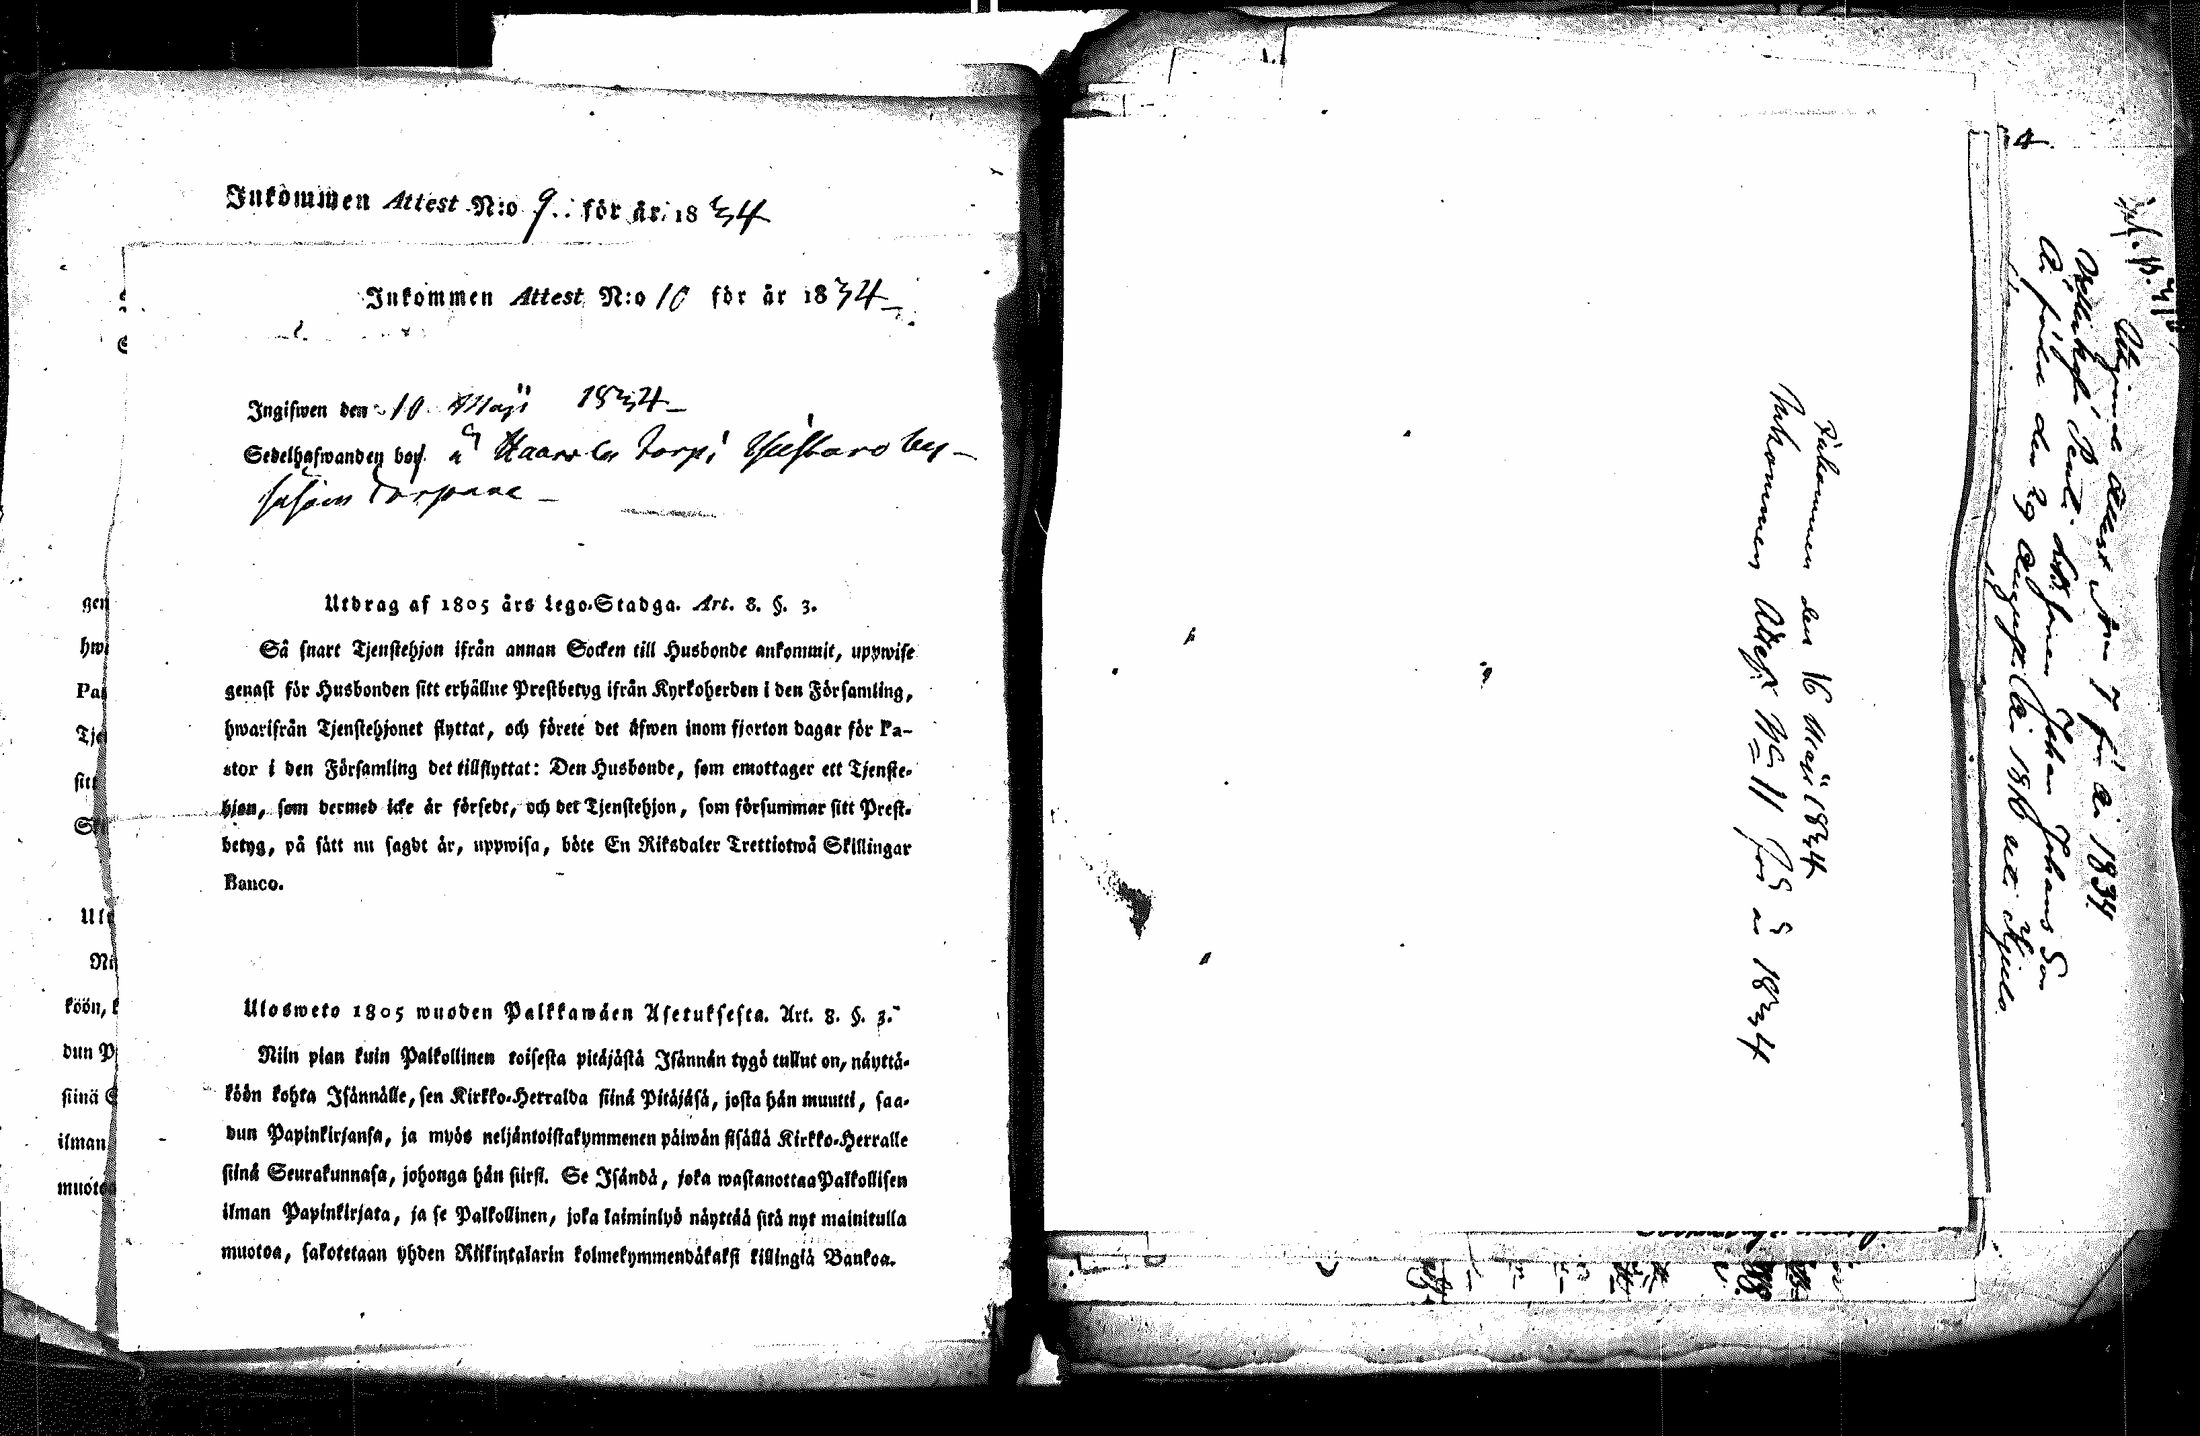 Inkommen Attest N:o 9. för år 1834
Inkommen Attest N:o 10 för år 1834
Ingifwen den 10 Maji 1834
Sedelhafwanden bor å Torp i by
såsom
Utdrag af 1805 års Lego-Stadga. Art. 8. §. 3.
Så snart Tjenstehjon ifrån annan Socken till Husbonde ankommit, uppwise
genast för Husbonden sitt erhållne Prestbetyg ifrån Kyrkoherden i den Församling,
hwarifrån Tjenstehjonet flyttat, och förete det äfwen inom fjorton dagar för Pa-
stor i den Församling det tillflyttat: Den Husbonde, som emottager ett Tjenste-
hjon, som dermed icke är försedt, och det Tjenstehjon, som försummar sitt Prest-
betyg, på sätt nu sagdt är, uppwisa, böte En Riksdaler Trettiotwå Skillingar
Banco.
Ulosweto 1805 wuoden Palkkawäen Asetuksesta. Art. 8. §. 3.
Niin pian kuin Palkollinen toisesta pitäjästä Isännän tygö tullut on, näyttä-
köön kohta Isännälle, sen Kirkko-Herralda siinä Pitäjäsä, josta hän muutti, saa-
dun Papinkirjansa, ja myös neljäntoistakymmenen päiwän sisällä Kirkko-Herralle
siinä Seurakunnasa, johonga hän siirsi. Se Isändä, joka wastanottaa Palkollisen
ilman Papinkirjata, ja se Palkollinen, joka laiminlyö näyttää sitä nyt mainitulla
muotoa, sakotetaan yhden Riikintalarin kolmekymmendäkaksi killingiä Bankoa.
gen
hwa
Pas
Tje
sitt
Ulo
Nii
köön, k
dun P
siinä S
ilman
muotoa
Inkommen den 16 Maji 1834
Inkommen Attest No 11 för år 1834
4
Attest No 7 för år 1834.
Johan Johans Son
är född den 29 Augusti år 1816 uti